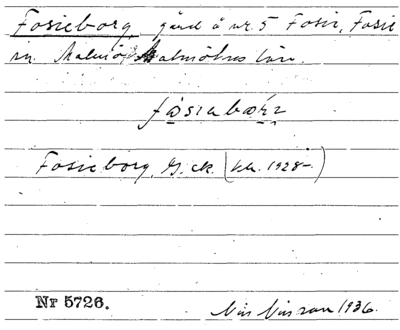 Fosieborg, gård å nr. 5 Fosie, Fosie
sn. Malmö, Malmöhus län.
Fosieborg, G. ek. (kh. 1928-.)
Nr 5726.
Nils Nilsson 1936.